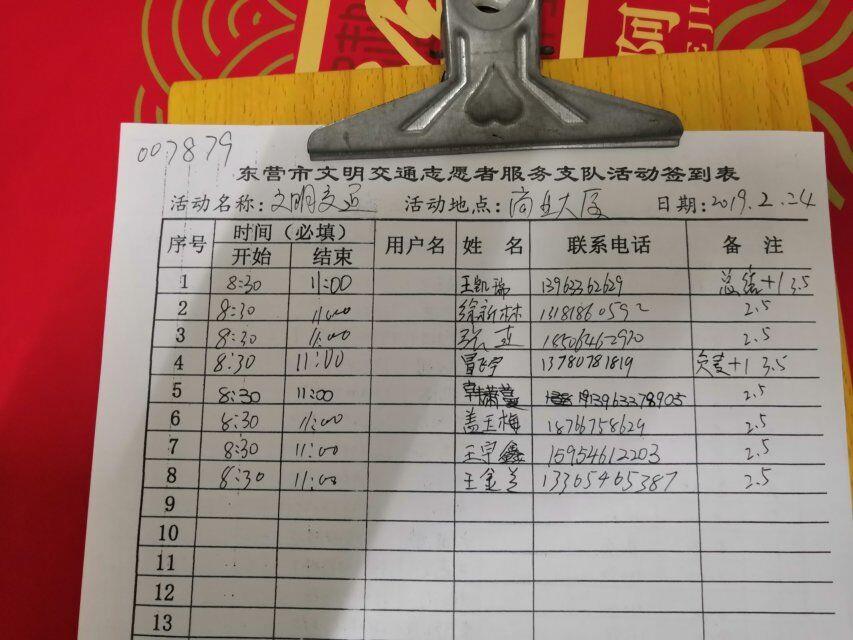 007879
东营市文明交通志愿者服务支队活动签到表
活动名称:文明交通 活动地点:商业大厦 日期:2019.2.24
序号 时间(必填) 用户名 姓 名 联系电话 备 注
开始 结束
1 8:30 11:00 王凯瑞 13963362629 总结+1 3.5
2 8:30 11:00 徐新林 13181860592 2.5
3 8:30 11:00 张 18506462970 2.5
4 8:30 11:00 13780781819 +1 3.5
5 8:30 11:00 13963378905 2.5
6 8:30 11:00 盖玉梅 18766758629 2.5
7 8:30 11:00 王宇鑫 15954612203 2.5
8 8:30 11:00 王金兰 13365465387 2.5
9
10
11
12
13